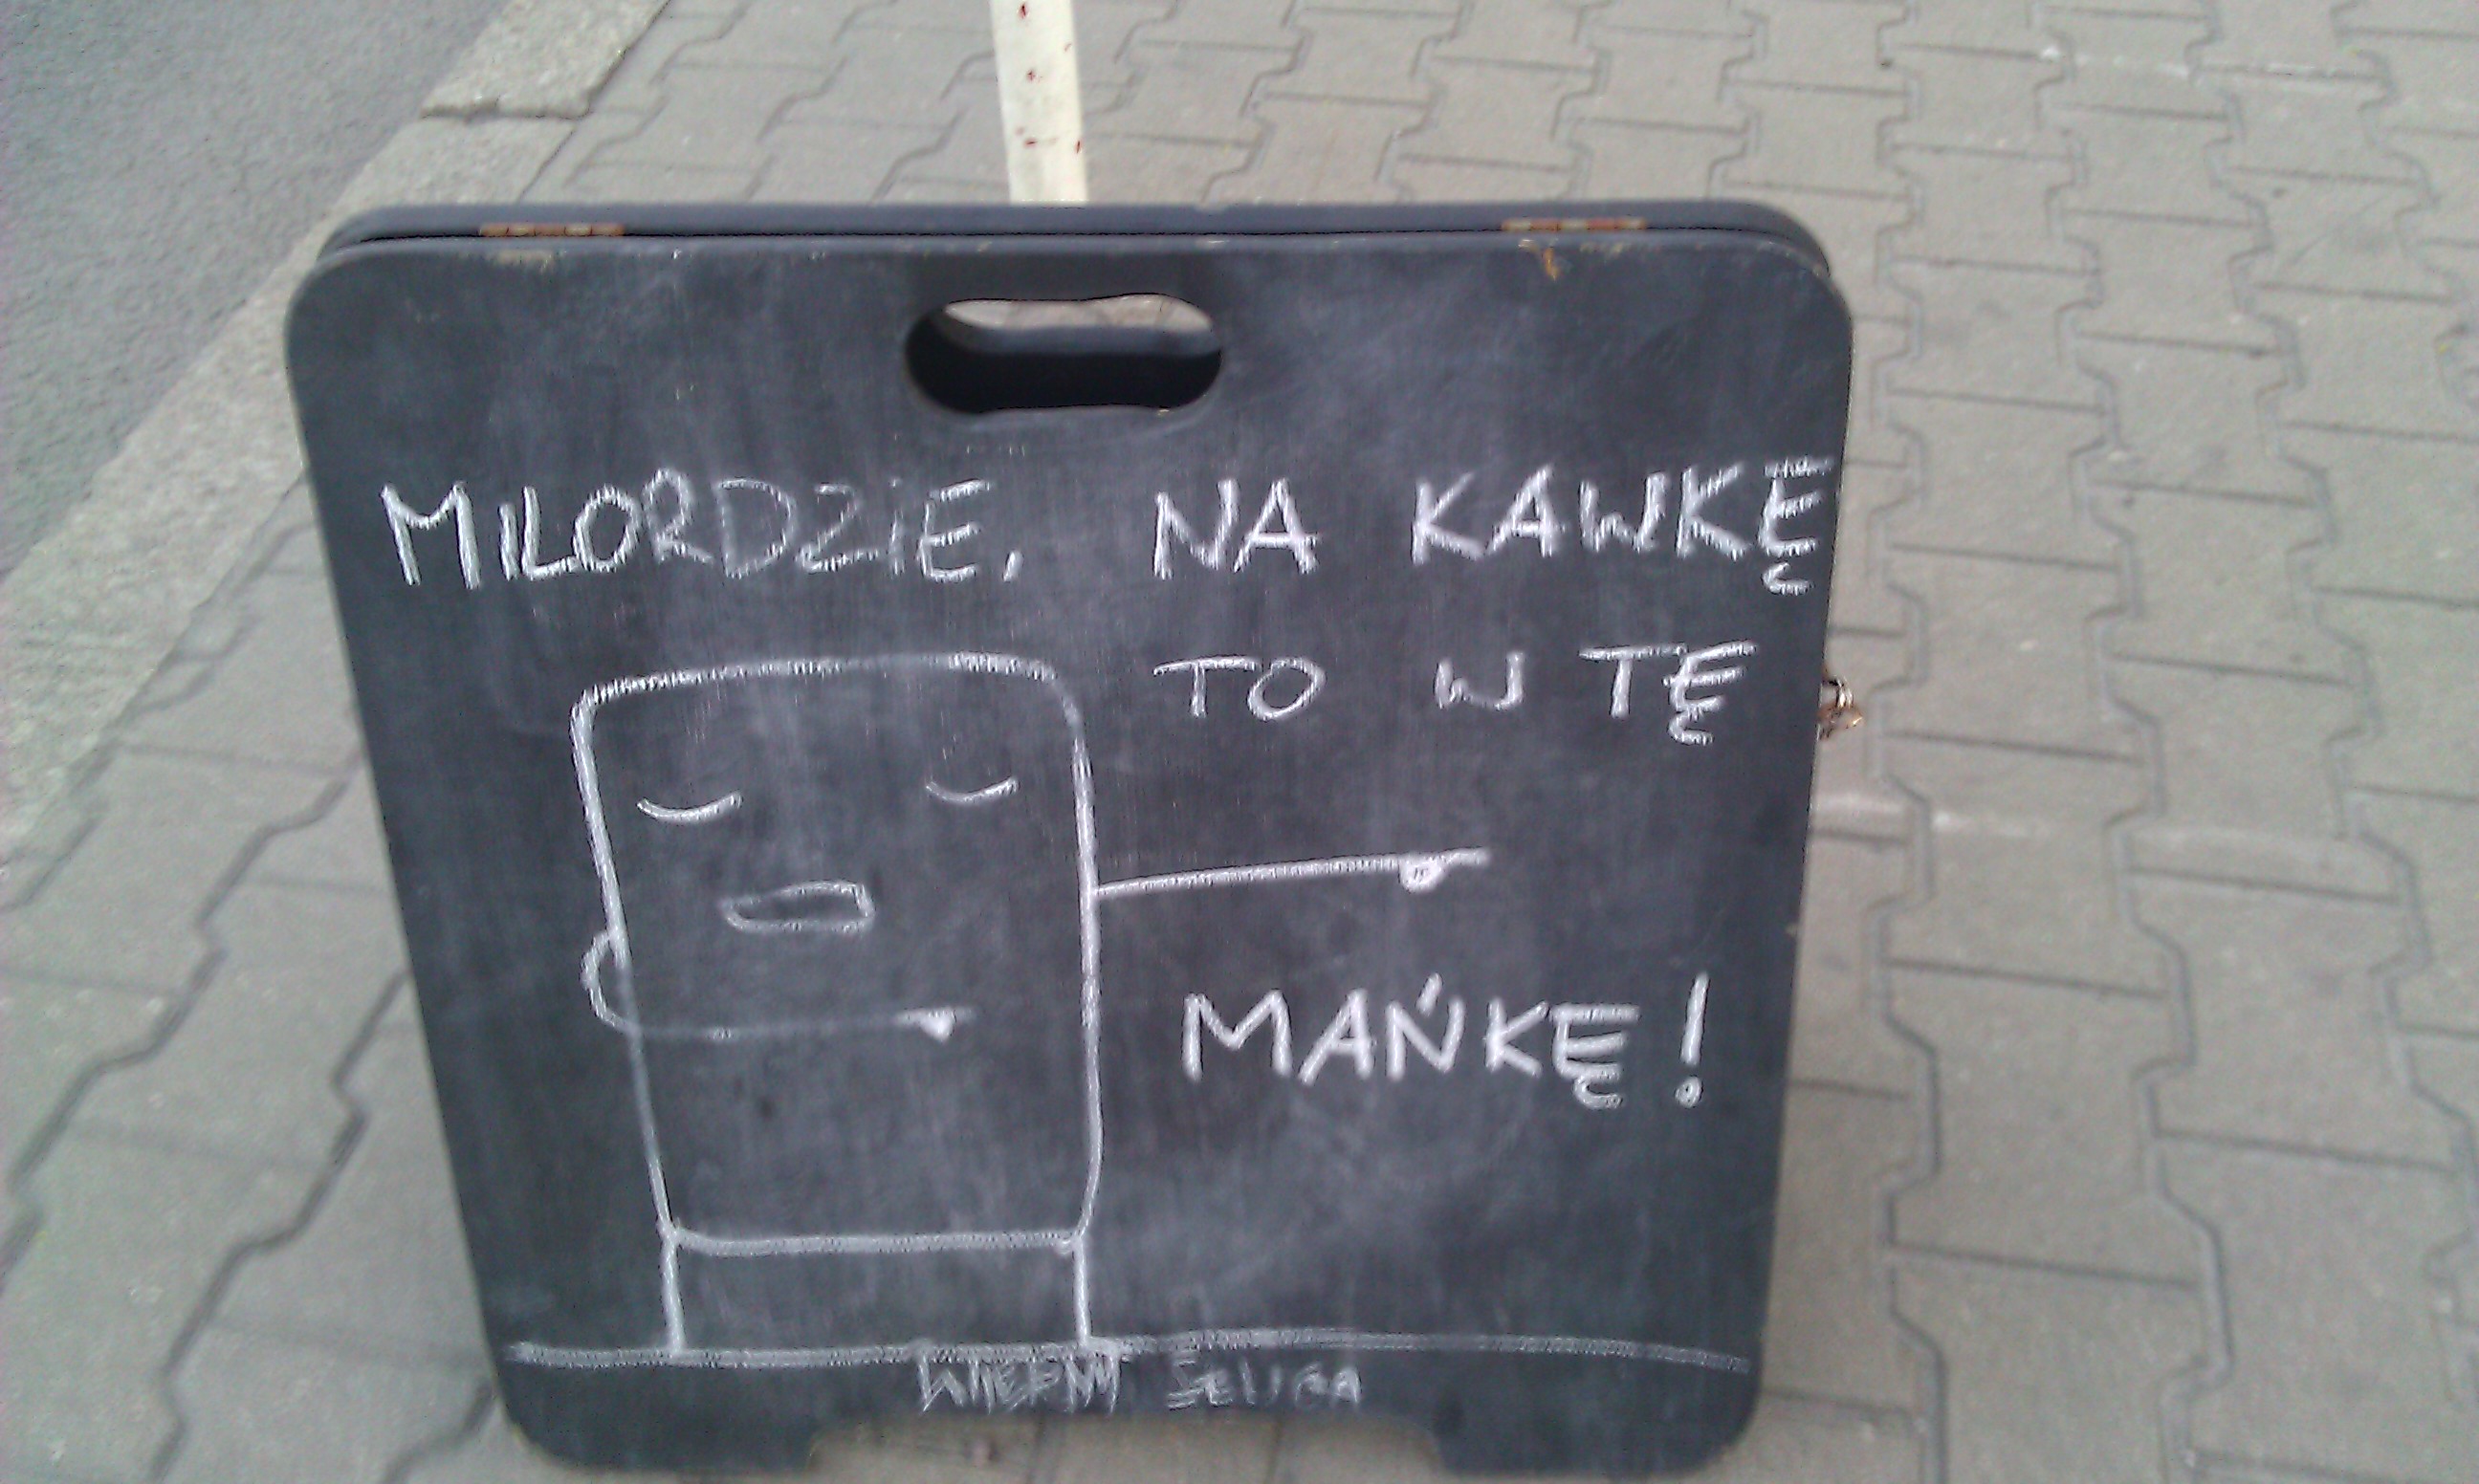 MILORDZIE, NA KAWKĘ
TO W TĘ
MAŃKĘ!
WIERNY SŁUGA